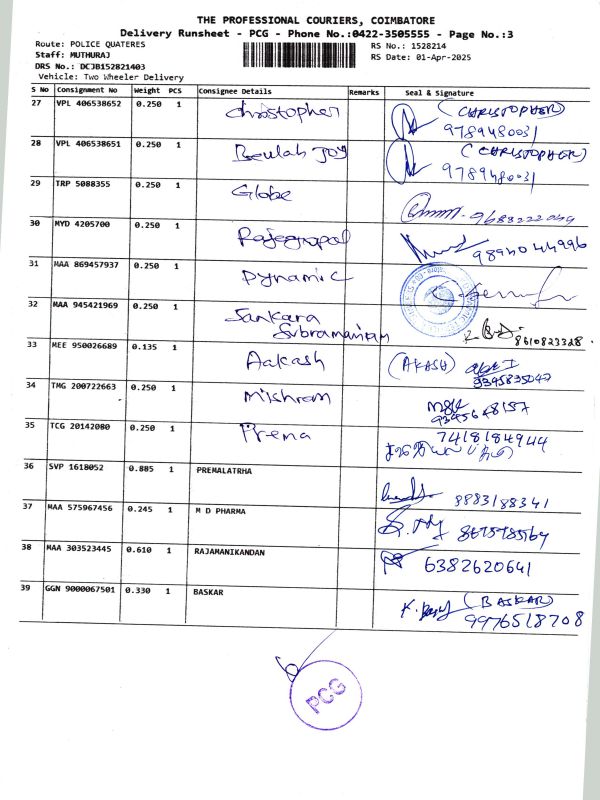 THE PROFESSIONAL COURIERS, COIMBATORE
Delivery Runsheet - PCG - Phone No.:0422-3505555 - Page No.:3
Route: POLICE QUATERES RS No.: 1528214
Staff: MUTHURAJ RS Date: 01-Apr-2025
DRS No.: DCJB152821403
Vehicle: Two Wheeler Delivery
S No Consignment No Weight PCS Consignee Details Remarks Seal & Signature
27 VPL 406538652 0.250 1 Christopher (CHRISTOPHER)
9789480031
28 VPL 406538651 0.250 1 Beulah Joy (CHRISTOPHER)
9789480031
29 TRP 5088355 0.250 1 Globe
30 MYD 4205700 0.250 1 Rajagopal 9894044996
31 MAA 869457937 0.250 1 Dynamic
32 MAA 945421969 0.250 1 Sankara
Subramaniam 8610823328
33 MEE 950026689 0.135 1 Aakash (AKASH)
9395835047
34 TMG 200722663 0.250 1 Mishram
9395648157
35 TCG 20142080 0.250 1 Prema 7418184944
36 SVP 1618052 0.885 1 PREMALATRHA
8883188341
37 MAA 575967456 0.245 1 M D PHARMA
38 MAA 303523445 0.610 1 RAJAMANIKANDAN 6382620641
39 GGN 9000067501 0.330 1 BASKAR (BASKAR)
9976518708
PCG